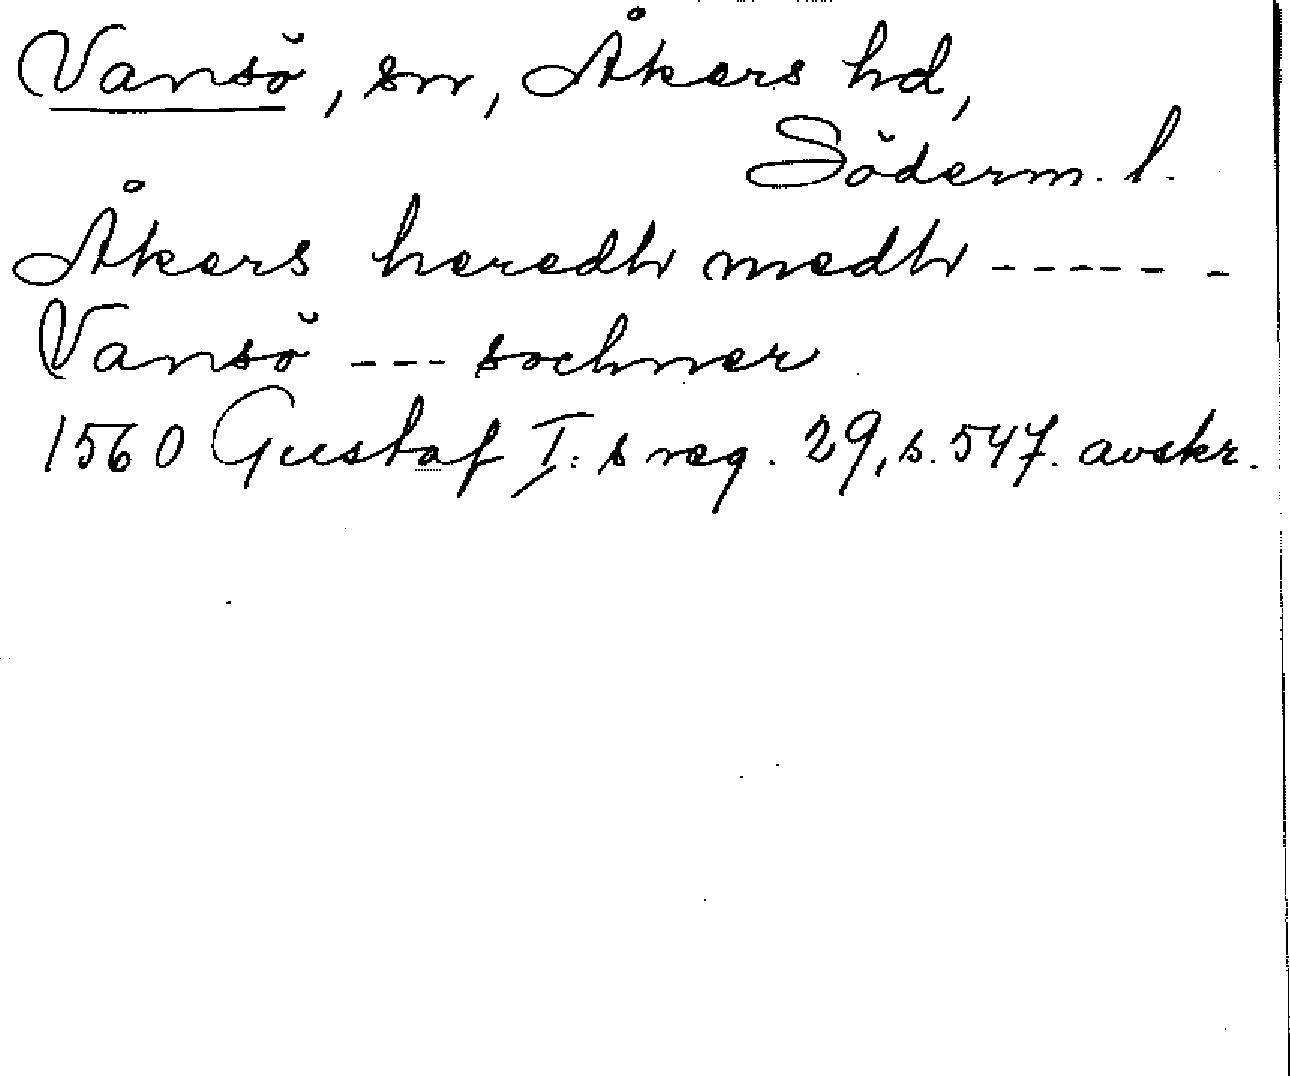 Vansö, sn, Åkers hd,
Söderm. l.
Åkers heredh medh ------
Vansö --- sochner
1560 Gustaf I:s reg. 29, s. 547. avskr.